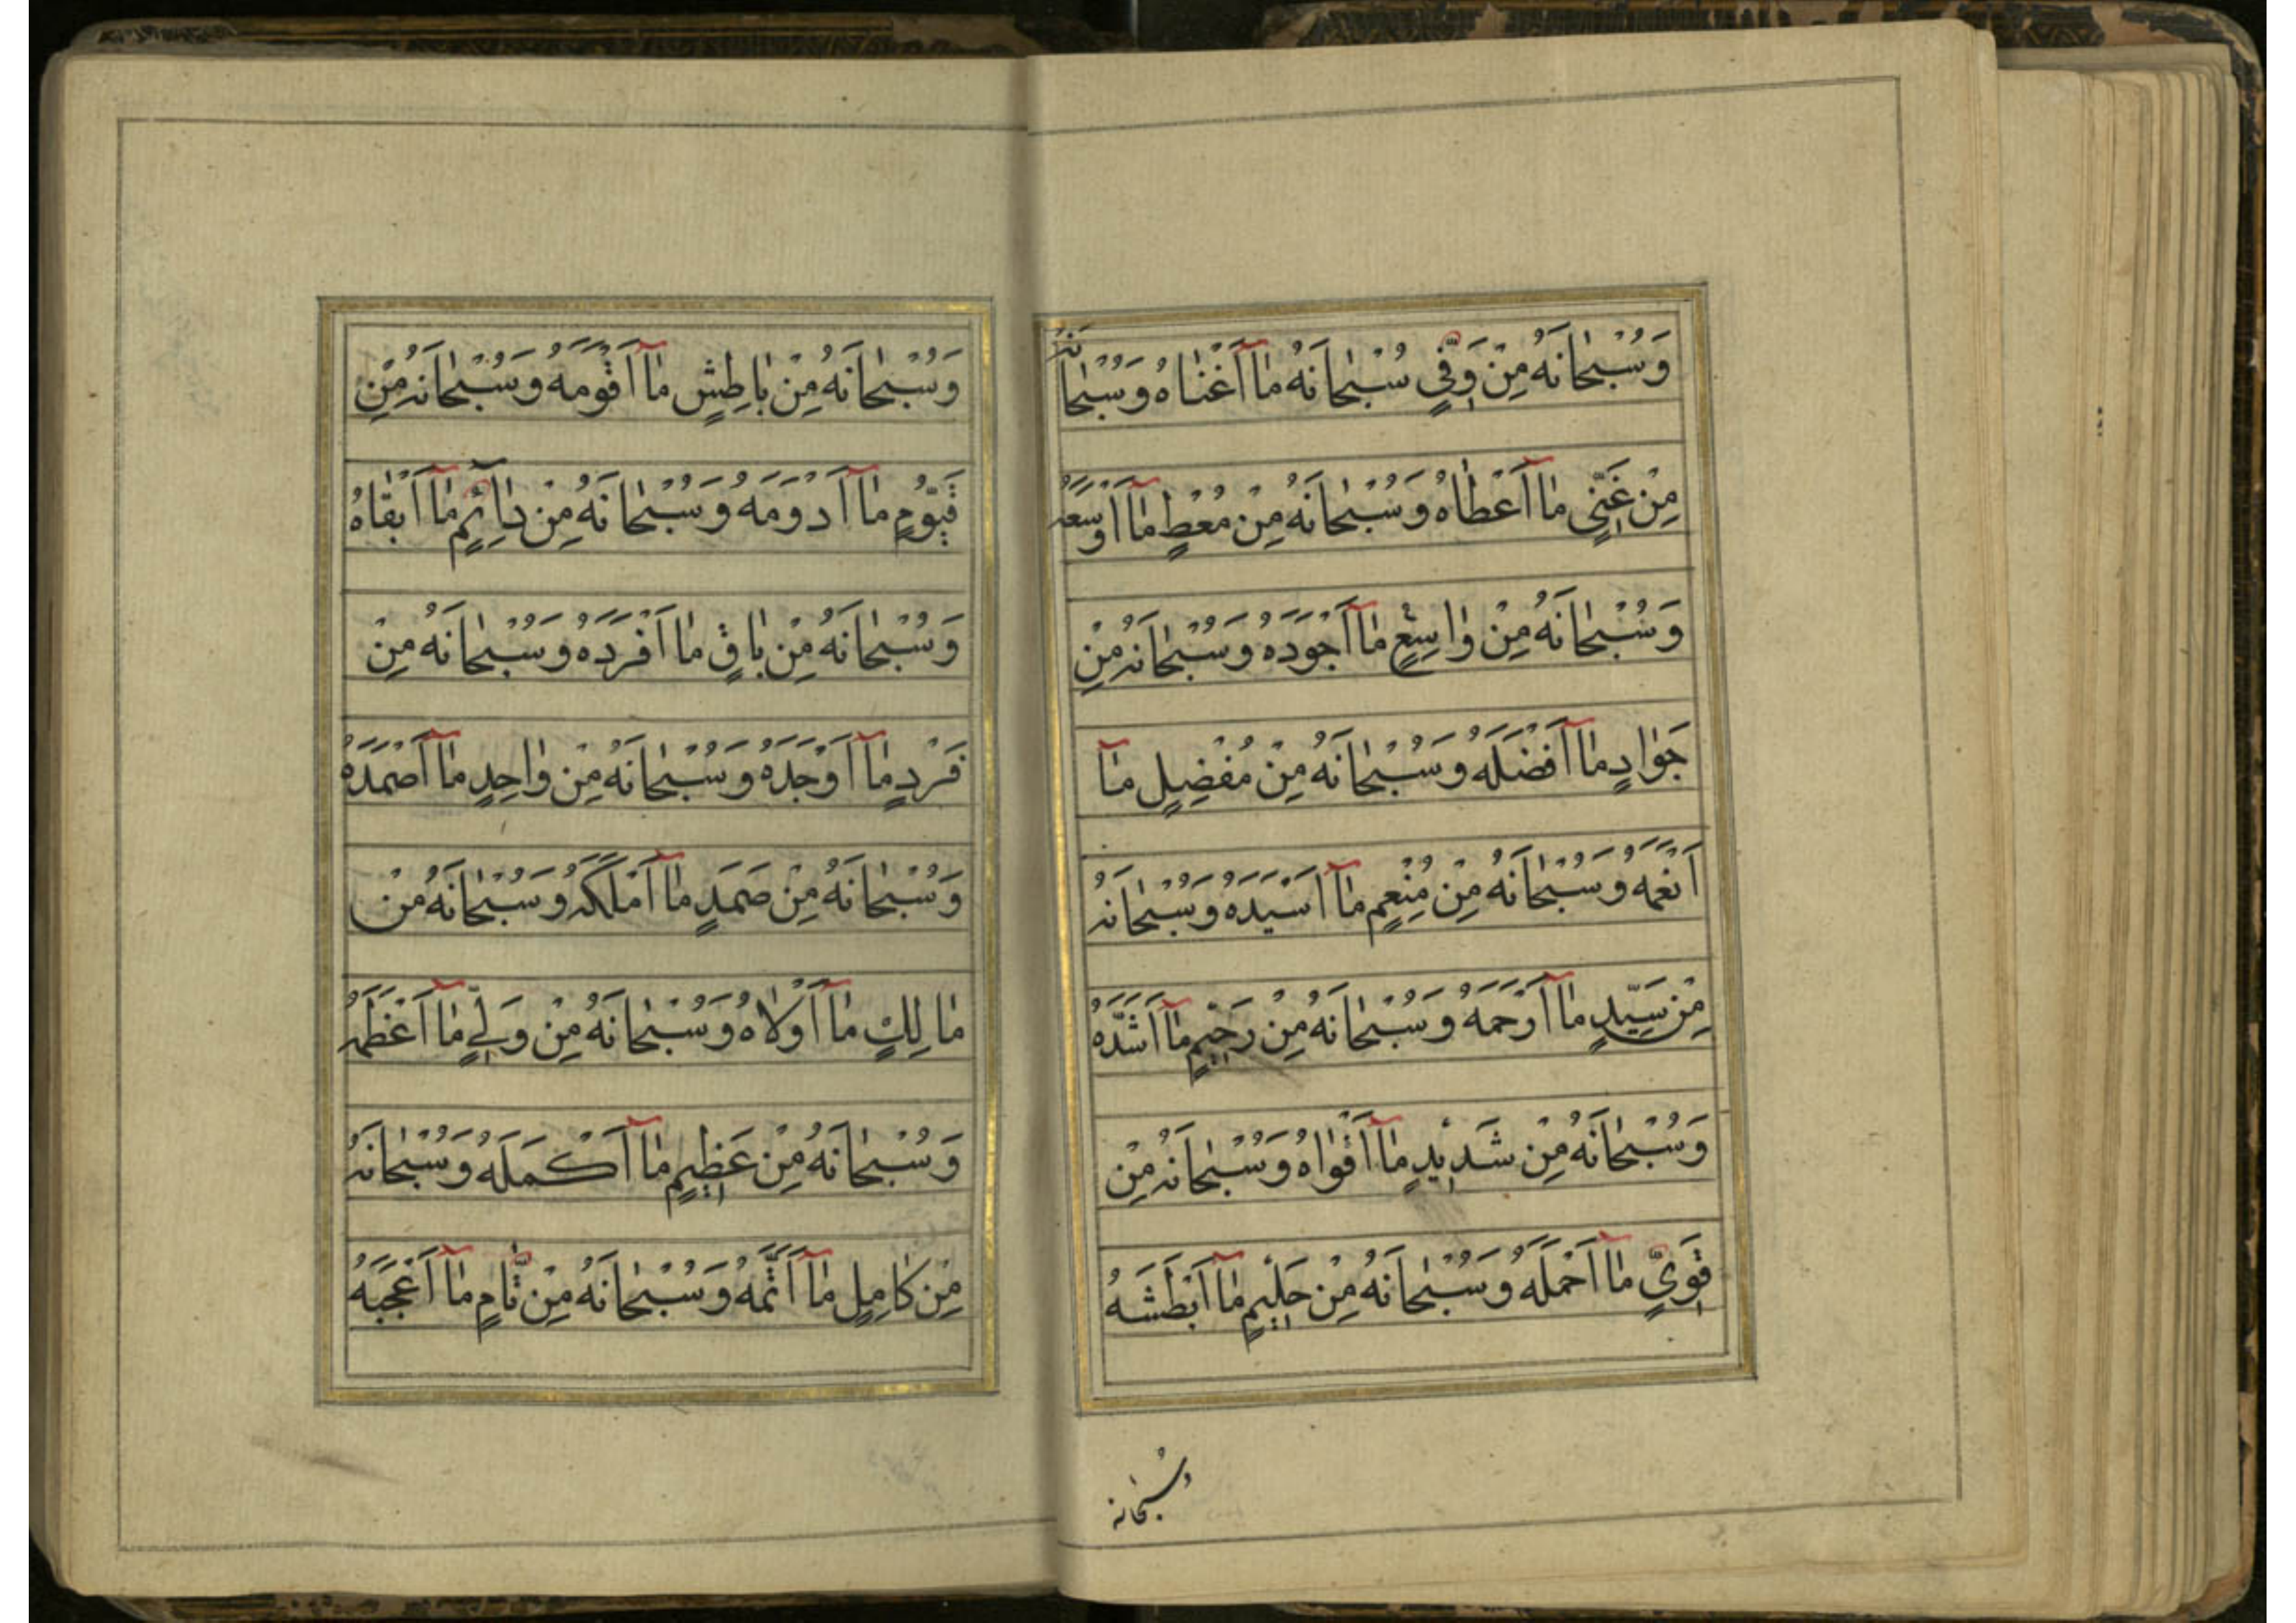 وَسُبْحَانَهُ مِنْ وَفِيٍّ سُبْحَانَهُ مَا أَغْنَاهُ وَسُبْحَانَهُ
مِنْ غَنِيٍّ مَا أَعْطَاهُ وَسُبْحَانَهُ مِنْ مُعْطٍ مَا أَوْسَعَهُ
وَسُبْحَانَهُ مِنْ وَاسِعٍ مَا أَجْوَدَهُ وَسُبْحَانَهُ مِنْ
جَوَادٍ مَا أَفْضَلَهُ وَسُبْحَانَهُ مِنْ مُفْضِلٍ مَا
أَنْعَمَهُ وَسُبْحَانَهُ مِنْ مُنْعِمٍ مَا أَسْيَدَهُ وَسُبْحَانَهُ
مِنْ سَيِّدٍ مَا أَرْحَمَهُ وَسُبْحَانَهُ مِنْ رَحِيمٍ مَا أَشَدَّهُ
وَسُبْحَانَهُ مِنْ شَدِيدٍ مَا أَقْوَاهُ وَسُبْحَانَهُ مِنْ
قَوِيٍّ مَا أَحْمَلَهُ وَسُبْحَانَهُ مِنْ حَلِيمٍ مَا أَبْطَشَهُ
وسبحانه
وَسُبْحَانَهُ مِنْ بَاطِشٍ مَا أَقْوَمَهُ وَسُبْحَانَهُ مِنْ
قَيُّومٍ مَا أَدْوَمَهُ وَسُبْحَانَهُ مِنْ دَائِمٍ مَا أَبْقَاهُ
وَسُبْحَانَهُ مِنْ بَاقٍ مَا أَفْرَدَهُ وَسُبْحَانَهُ مِنْ
فَرْدٍ مَا أَوْحَدَهُ وَسُبْحَانَهُ مِنْ وَاحِدٍ مَا أَصْمَدَهُ
وَسُبْحَانَهُ مِنْ صَمَدٍ مَا أَمْلَكَهُ وَسُبْحَانَهُ مِنْ
مَالِكٍ مَا أَوْلَاهُ وَسُبْحَانَهُ مِنْ وَلِيٍّ مَا أَعْظَمَهُ
وَسُبْحَانَهُ مِنْ عَظِيمٍ مَا أَكْمَلَهُ وَسُبْحَانَهُ
مِنْ كَامِلٍ مَا أَتَمَّهُ وَسُبْحَانَهُ مِنْ تَامٍّ مَا أَعْجَبَهُ